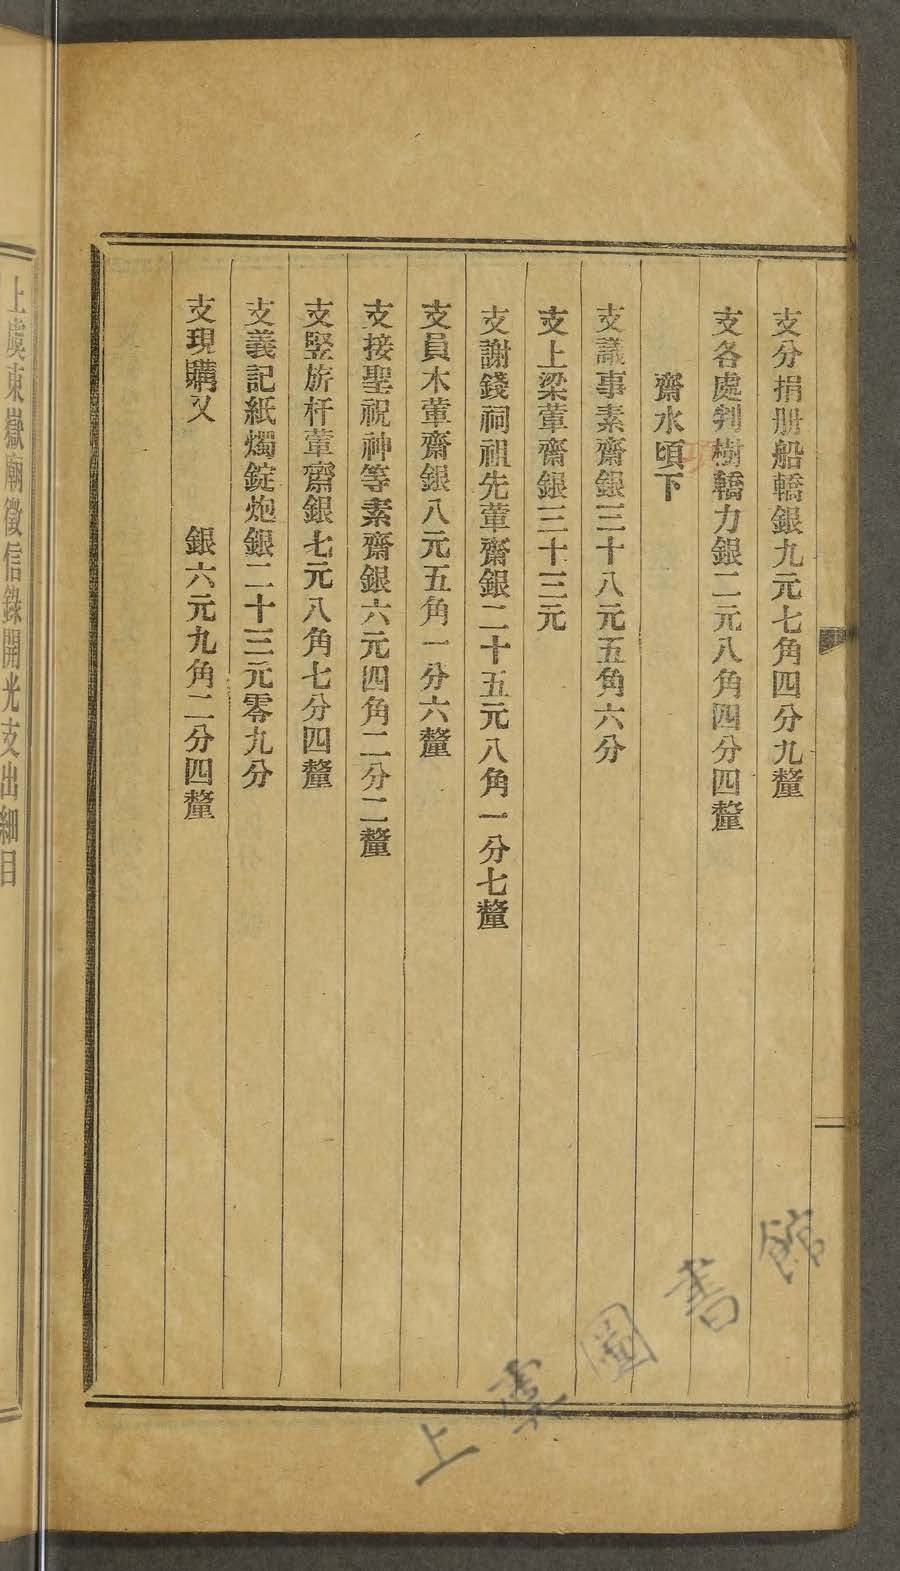 支分捐册船轎銀九元七角四分九釐
支各處判樹轎力銀二元八角四分四釐
齋水頃下
項
支議事素齋銀三十八元五角六分
支上梁葷齋銀三十三元
支謝錢祠祖先葷齋銀二十五元八角一分七釐
支員木葷齋銀八元五角一分六釐
支接聖祝神等素齋銀六元四角二分二釐
支竪旂杆葷齋銀七元八角七分四釐
支義記紙燭錠炮銀二十三元零九分
支現購又 銀六元九角二分四釐
上虞東嶽廟徵信錄開光支出細目
上虞圖書館